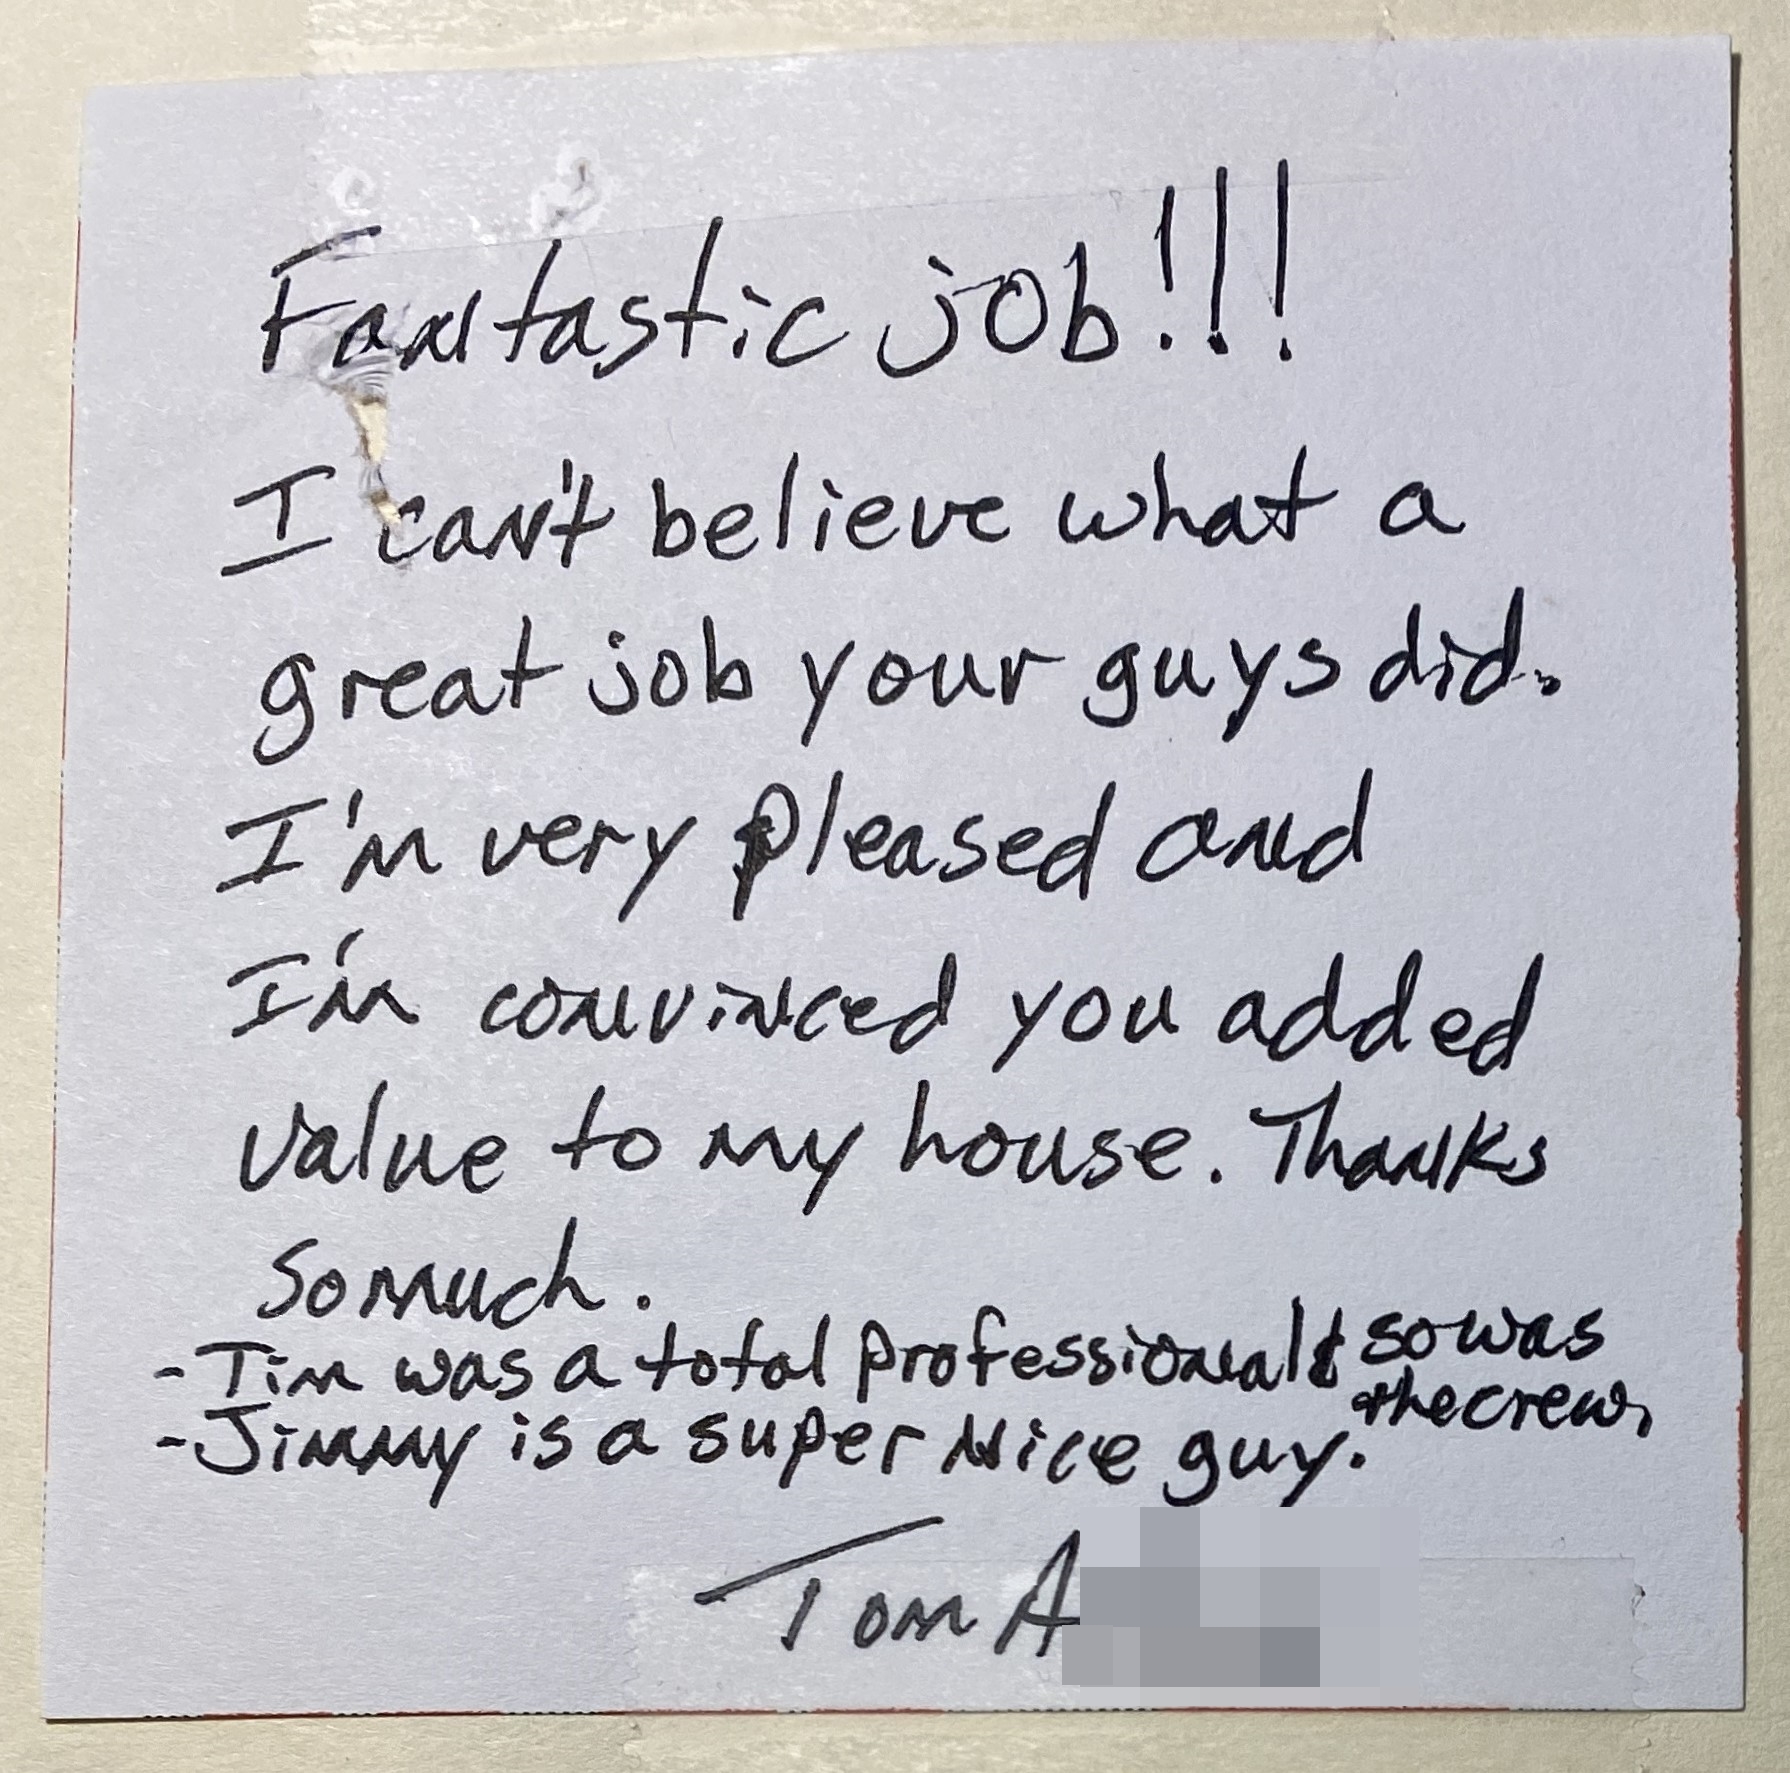 Fantastic job!!!
I can't believe what a
great job your guys did.
I'm very pleased and
I'm convinced you added
value to my house. Thanks
so much.
- Tim was a total professional & so was
the crew.
- Jimmy is a super nice guy.
Tom A